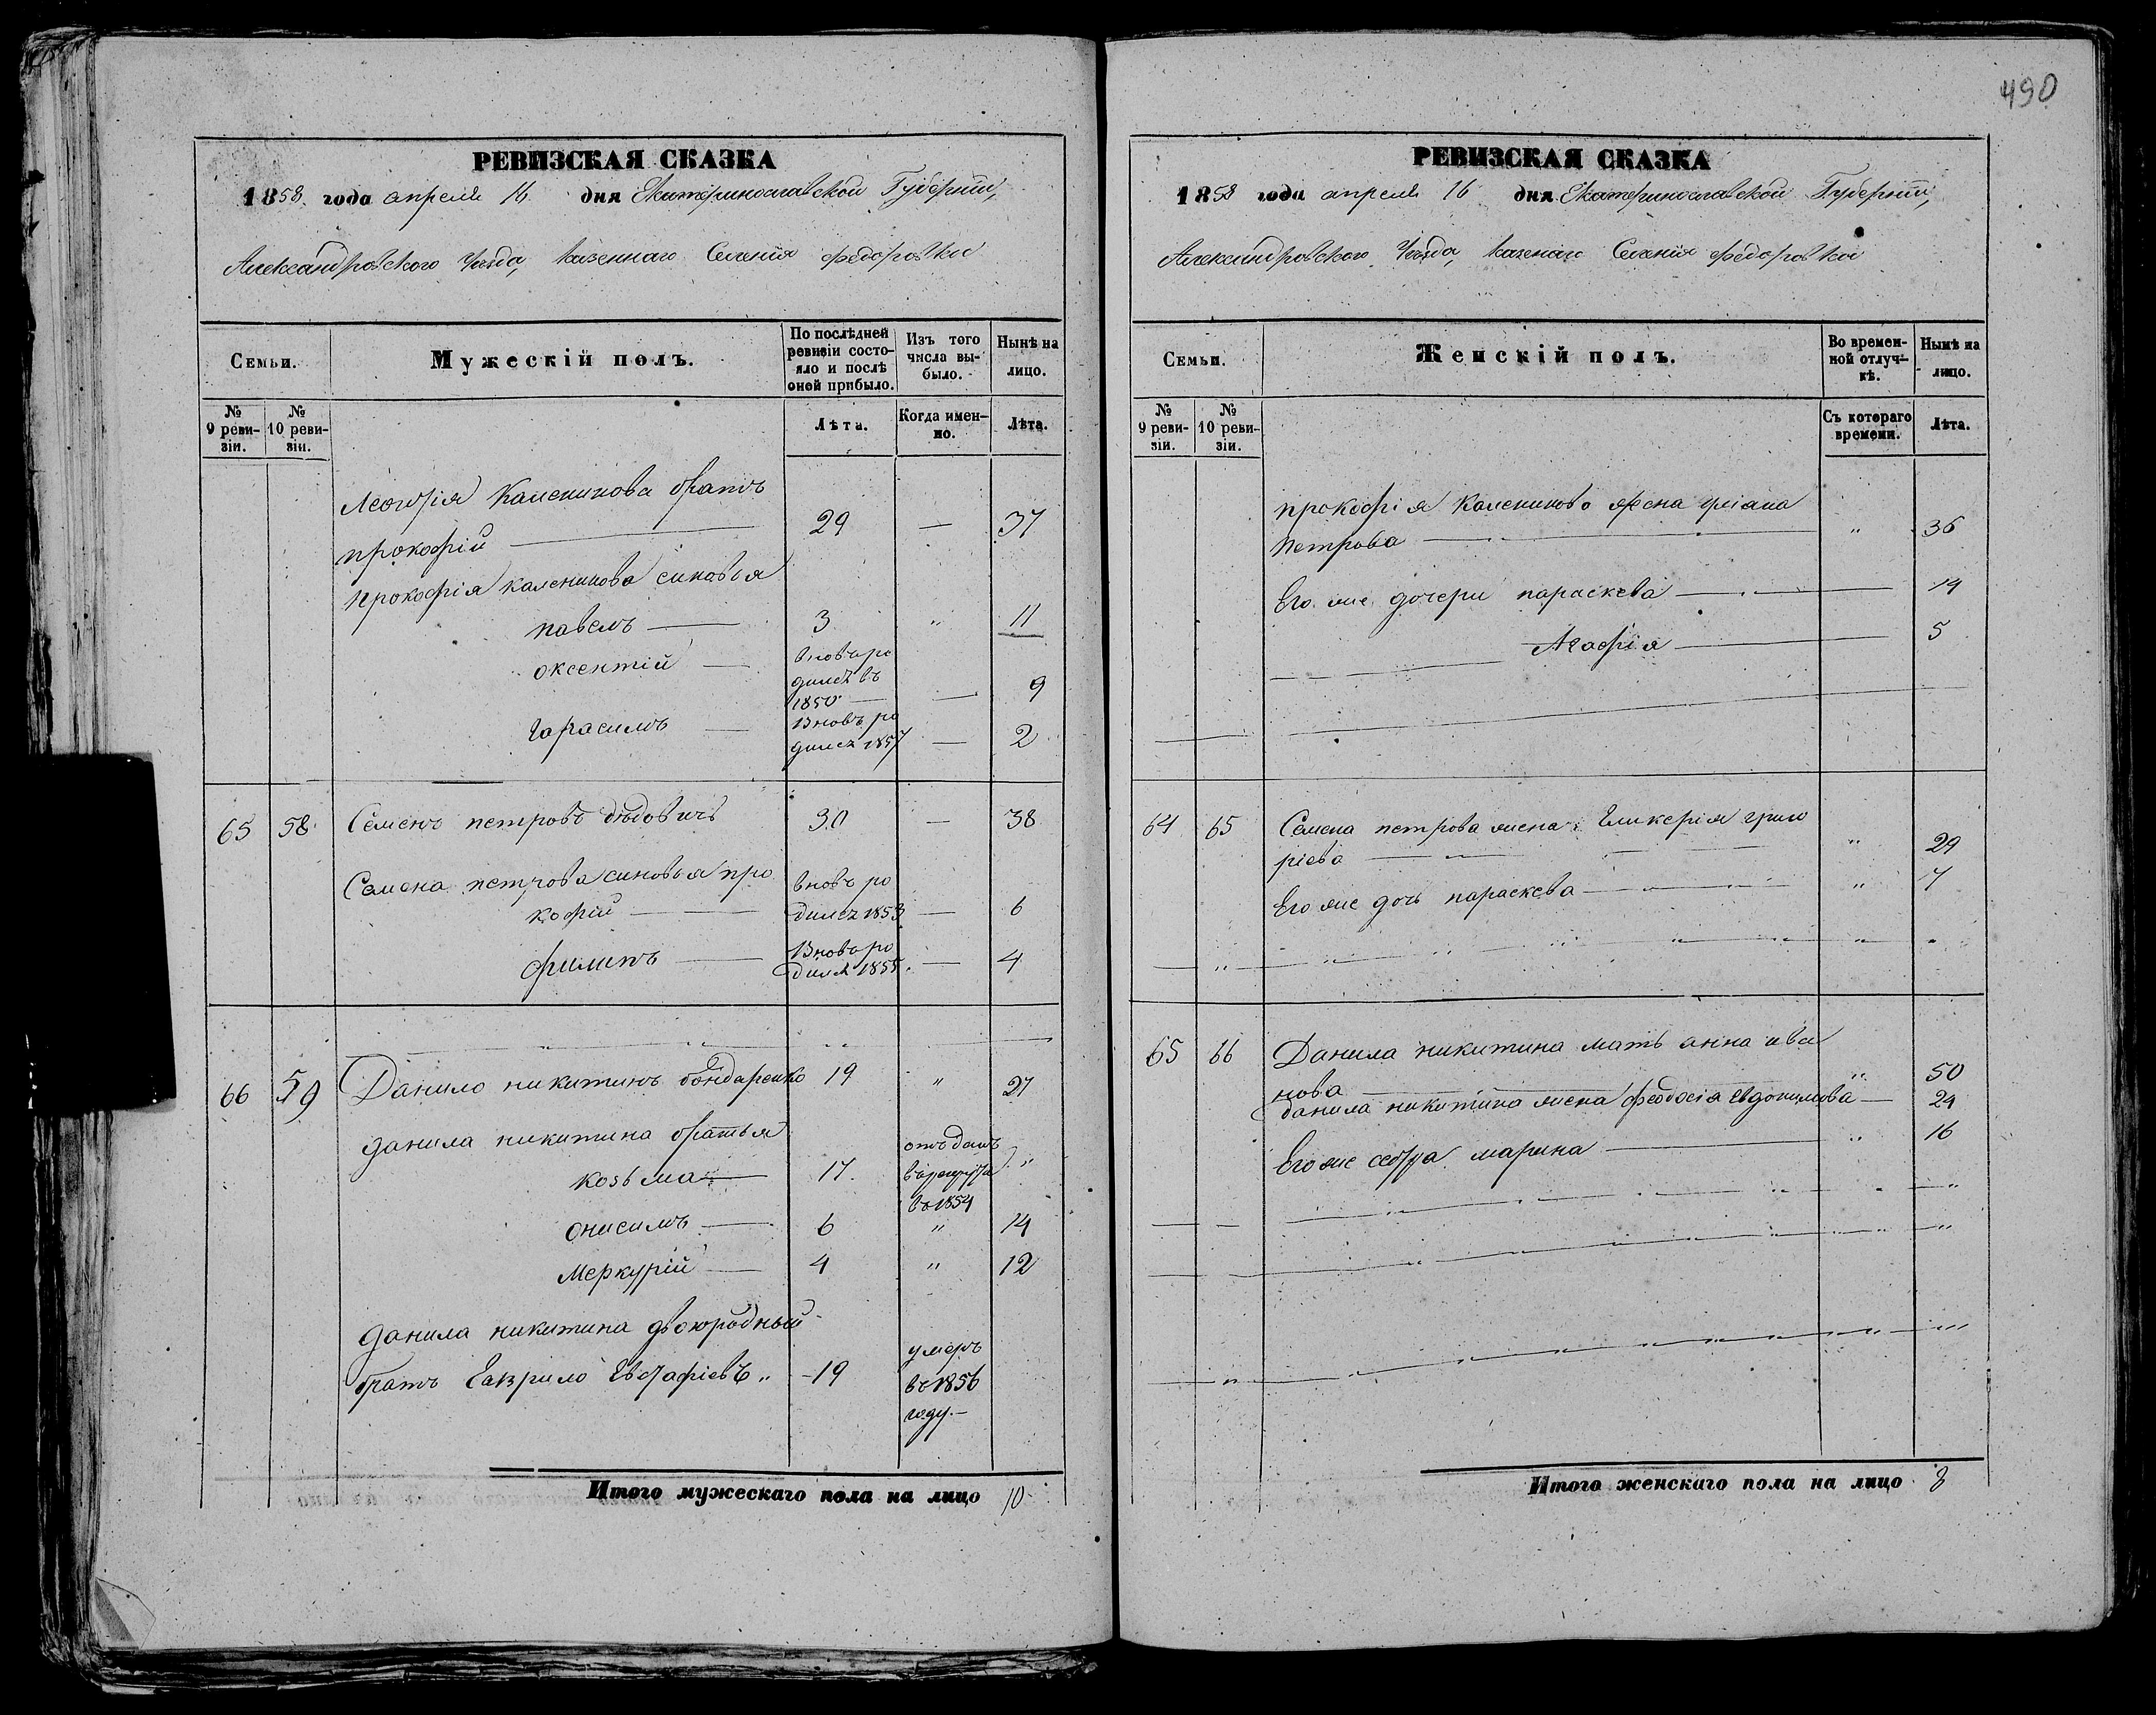 490
РЕВИЗСКАЯ СКАЗКА
1858 года апреля 16 дня Екатеринославской Губернии,
Александровского Уезда, Казеннаго Селения Федоровки
Семьи.
Мужескій полъ.
По послѣдней ревизіи состо-яло и послѣ оной прибыло.
Изъ того числа вы-было.
Нынѣ на лицо.
№ 9 реви-зіи.
№ 10 реви-зіи.
Лѣта.
Когда имен-но.
Лѣта.
Каленикова братъ
прокофій — 29 — 37
прокофія каленикова синовья
павелъ — 3 " 11
оксентій — вновь ро
дилсъ въ
1850 — 9
Гарасимъ — Вновь ро
дилсъ 1857 — 2
65 58 Семенъ петровъ дѣдовичъ 30 — 38
Семена петрова синовья про вновь ро
кофій — дилсъ 1853 — 6
филипъ — Вновь ро
дилсъ 1855. — 4
66 59 Данило никитинъ бондаренко 19 " 27
данила никитина братья
козьма — 17. отъданъ
въ рекрута "
въ 1854
онисимъ — 6 " 14
Меркурій — 4 " 12
данила никитина двоюродный
братъ Гаврило Евстафіевъ " - 19 умеръ
въ 1856
году.—
Итого мужескаго пола на лицо 10
РЕВИЗСКАЯ СКАЗКА
1858 года апреля 16 дня Екатеринославской Губернии,
Александровского Уезда, Казенаго Селения Федоровки
Семьи.
Женскій полъ.
Во времен-ной отлуч-кѣ.
Нынѣ на лицо.
№ 9 реви-зіи.
№ 10 реви-зіи.
Съ котораго времени.
Лѣта.
прокофія Каленикова жена
петрова — " 36
Его же дочери параскева — 14
Агафія — 5
64 65 Семена петрова жена Гликерія григо
ріева — " 29
Его же дочь параскева — " 7
65 66 Данила никитина мать анна ива
нова — " 50
данила никитина жена феодосія Евдокимова — 24
Его же сестра марина — " 16
Итого женскаго пола на лицо 8